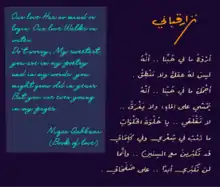 Our love Has no mind or
logic. Our love Walks on
water.
Don't worry, My sweetest
you are in my poetry
and in my words. you
might grow old in years
But you are ever young
in my pages
Nizar Qabbani
(Book of love)
نزار قباني
أروع ما في حبنا .. أنه
ليس له عقل ولا منطق
أجمل ما في حبنا .. أنه
يمشي على الماء ولا يغرق
لا تقلقي . يا حلوة الحلوات
ما دمت في شعري .. وفي كلماتي
قد تكبرين مع السنين .. وإنما
لن تكبري أبدا .. على صفحاتي